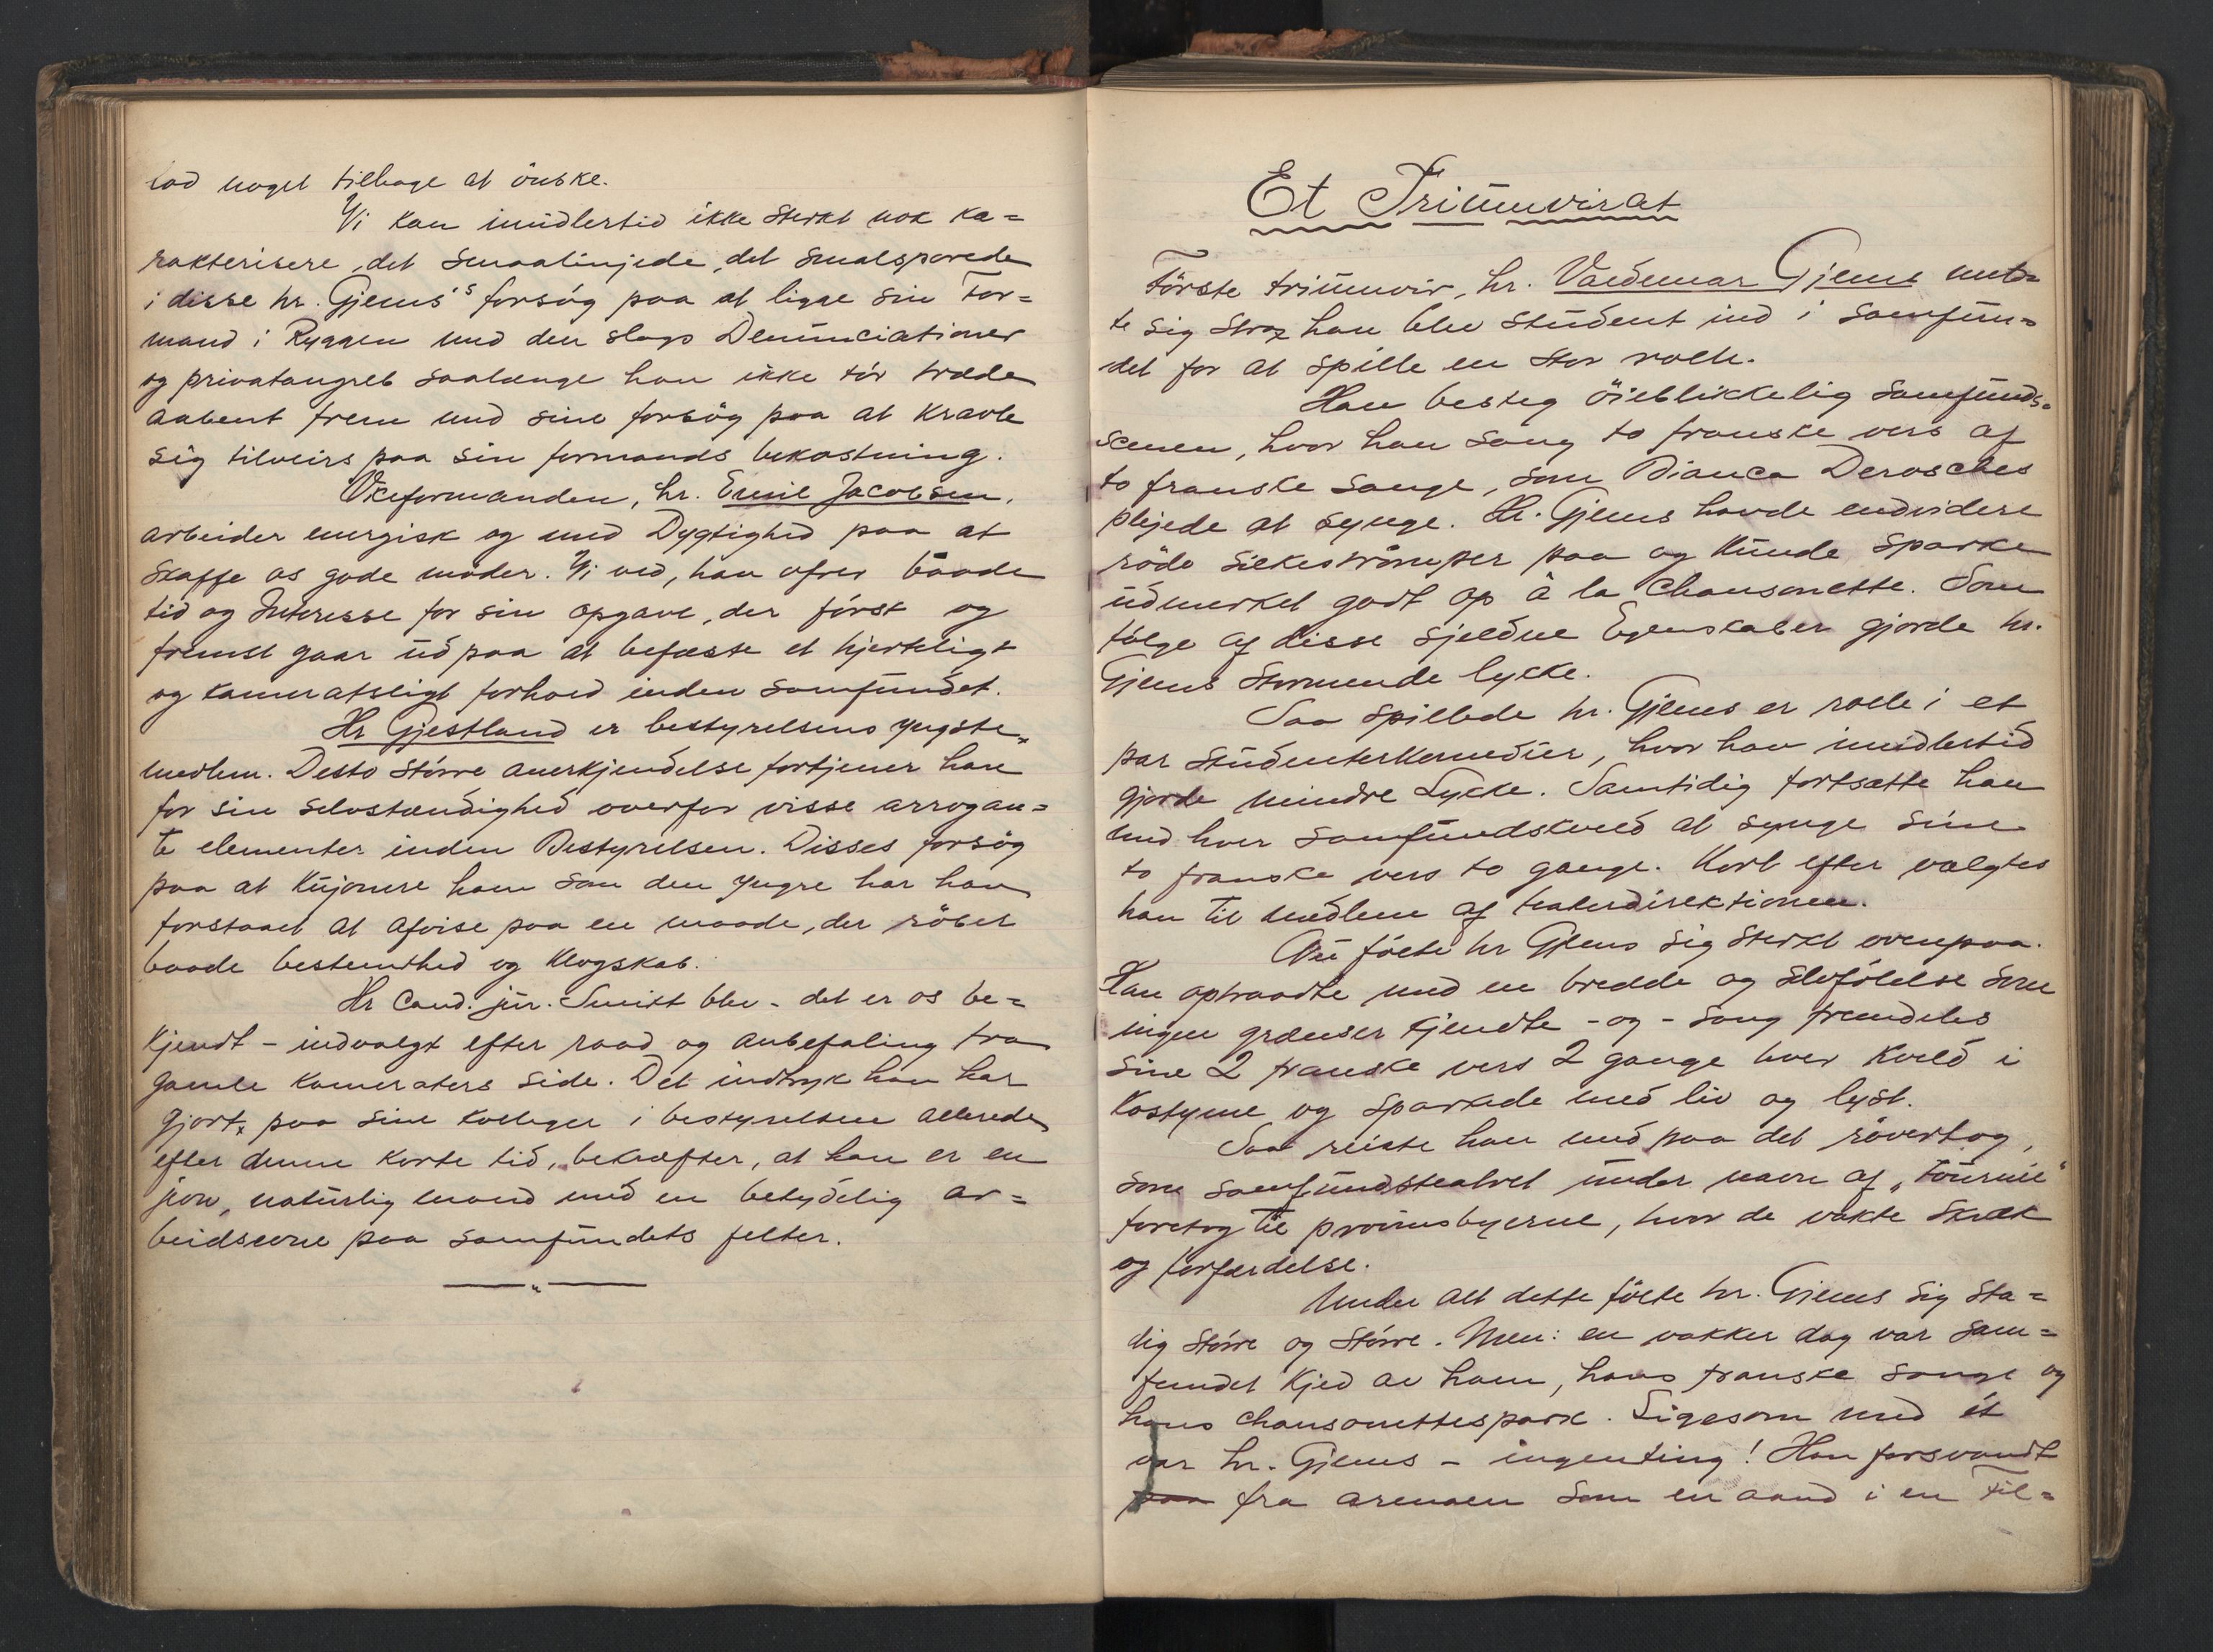 lod noget tilbage at önske.
Vi kan imidlertid ikke sterkt nok ka=
rakterisere det smaalinjede, det smalsporede
i disse hr. Gjems's forsög paa at ligge sin For=
mand i Ryggen med den slags Denunciationer
og privatangreb saalænge han ikke tör træde
aabent frem med sine forsög paa at kravle
sig tilveirs paa sin formands bekostning.
Viceformanden, hr. Emil Jacobsen,
arbeider energisk og med Dygtighed paa at
skaffe os gode möder. Vi ved, han ofrer baade
tid og Interesse for sin opgave, der först og
fremst gaar ud paa at befæste et hjerteligt
og kameratsligt forhold inden Samfundet.
Hr Gjestland er bestyrelsens yngste
medlem. Desto större anerkjendelse fortjener han
for sin selvstændighed overfor visse arrogan=
te elementer inden Bestyrelsen. Disses forsög
paa at kujonere ham som den yngre har han
forstaaet at afvise paa en maade, der röber
baade bestemthed og klogskab.
Hr Cand. jur. Smidt blev - det er os be=
kjendt - indvalgt efter raad og anbefaling fra
gamle kameraters side. Det indtryk han har
gjort paa sine kolleger i bestyrelsen allerede
efter denne korte tid, bekræfter, at han er en
jevn, naturlig mand med en betydelig ar=
beidsevne paa Samfundets felter.
Et Triumvirat
Förste triumvir, hr. Valdemar Gjems meld=
te sig strax han blev student ind i Samfun=
det for at spille en stor rolle.
Han besteg öieblikkelig Samfunds=
scenen, hvor han sang to franske vers af
to franske sange, som Bianca Derosches
plejede at synge. Hr. Gjems havde endvidere
röde silkeströmper paa og kunde sparke
udmerket godt op à la chansonette. Som
fölge af disse sjeldne Egenskaber gjorde hr.
Gjems stormende lykke.
Saa spillede hr. Gjems en rolle i et
par studenterkomedier, hvor han imidlertid
gjorde mindre Lykke. Samtidig fortsatte han
med hver samfundskveld at synge sine
to franske vers to gange. Kort efter valgtes
han til medlem af teaterdirektionen.
Nu fölte hr Gjems sig sterkt ovenpaa.
Han optraadte med en bredde og selvfölelse som
ingen grænser kjendte - og - sang fremdeles
sine 2 franske vers 2 gange hver kveld i
kostyme og sparkede med liv og lyst.
Saa reiste han med paa det rövertog,
som samfundsteatret under navn af „Tournée"
foretog til provinsbyerne, hvor de vakte skræk
og forfærdelse.
Under alt dette fölte hr. Gjems sig sta=
dig större og större. Men: en vakker dag var Sam=
fundet kjed av ham, hans franske sange og
hans chansonettespark. Ligesom med ét
var hr. Gjems - ingenting! Han forsvandt
fra arenaen som en aand i en Fil=